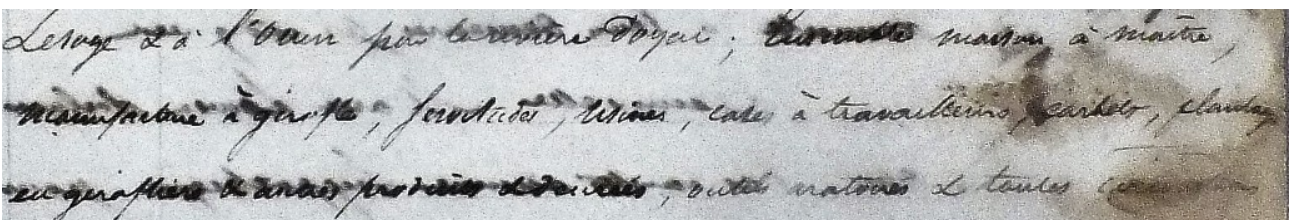 Lesage & à l'Ouen par la rivière d'Oyac; maison à maître,
manufacture à girofle, servitudes, usines, cases à travailleurs, carbets, plantages
en girofliers & autres produits & denrées, outils aratoires & toutes